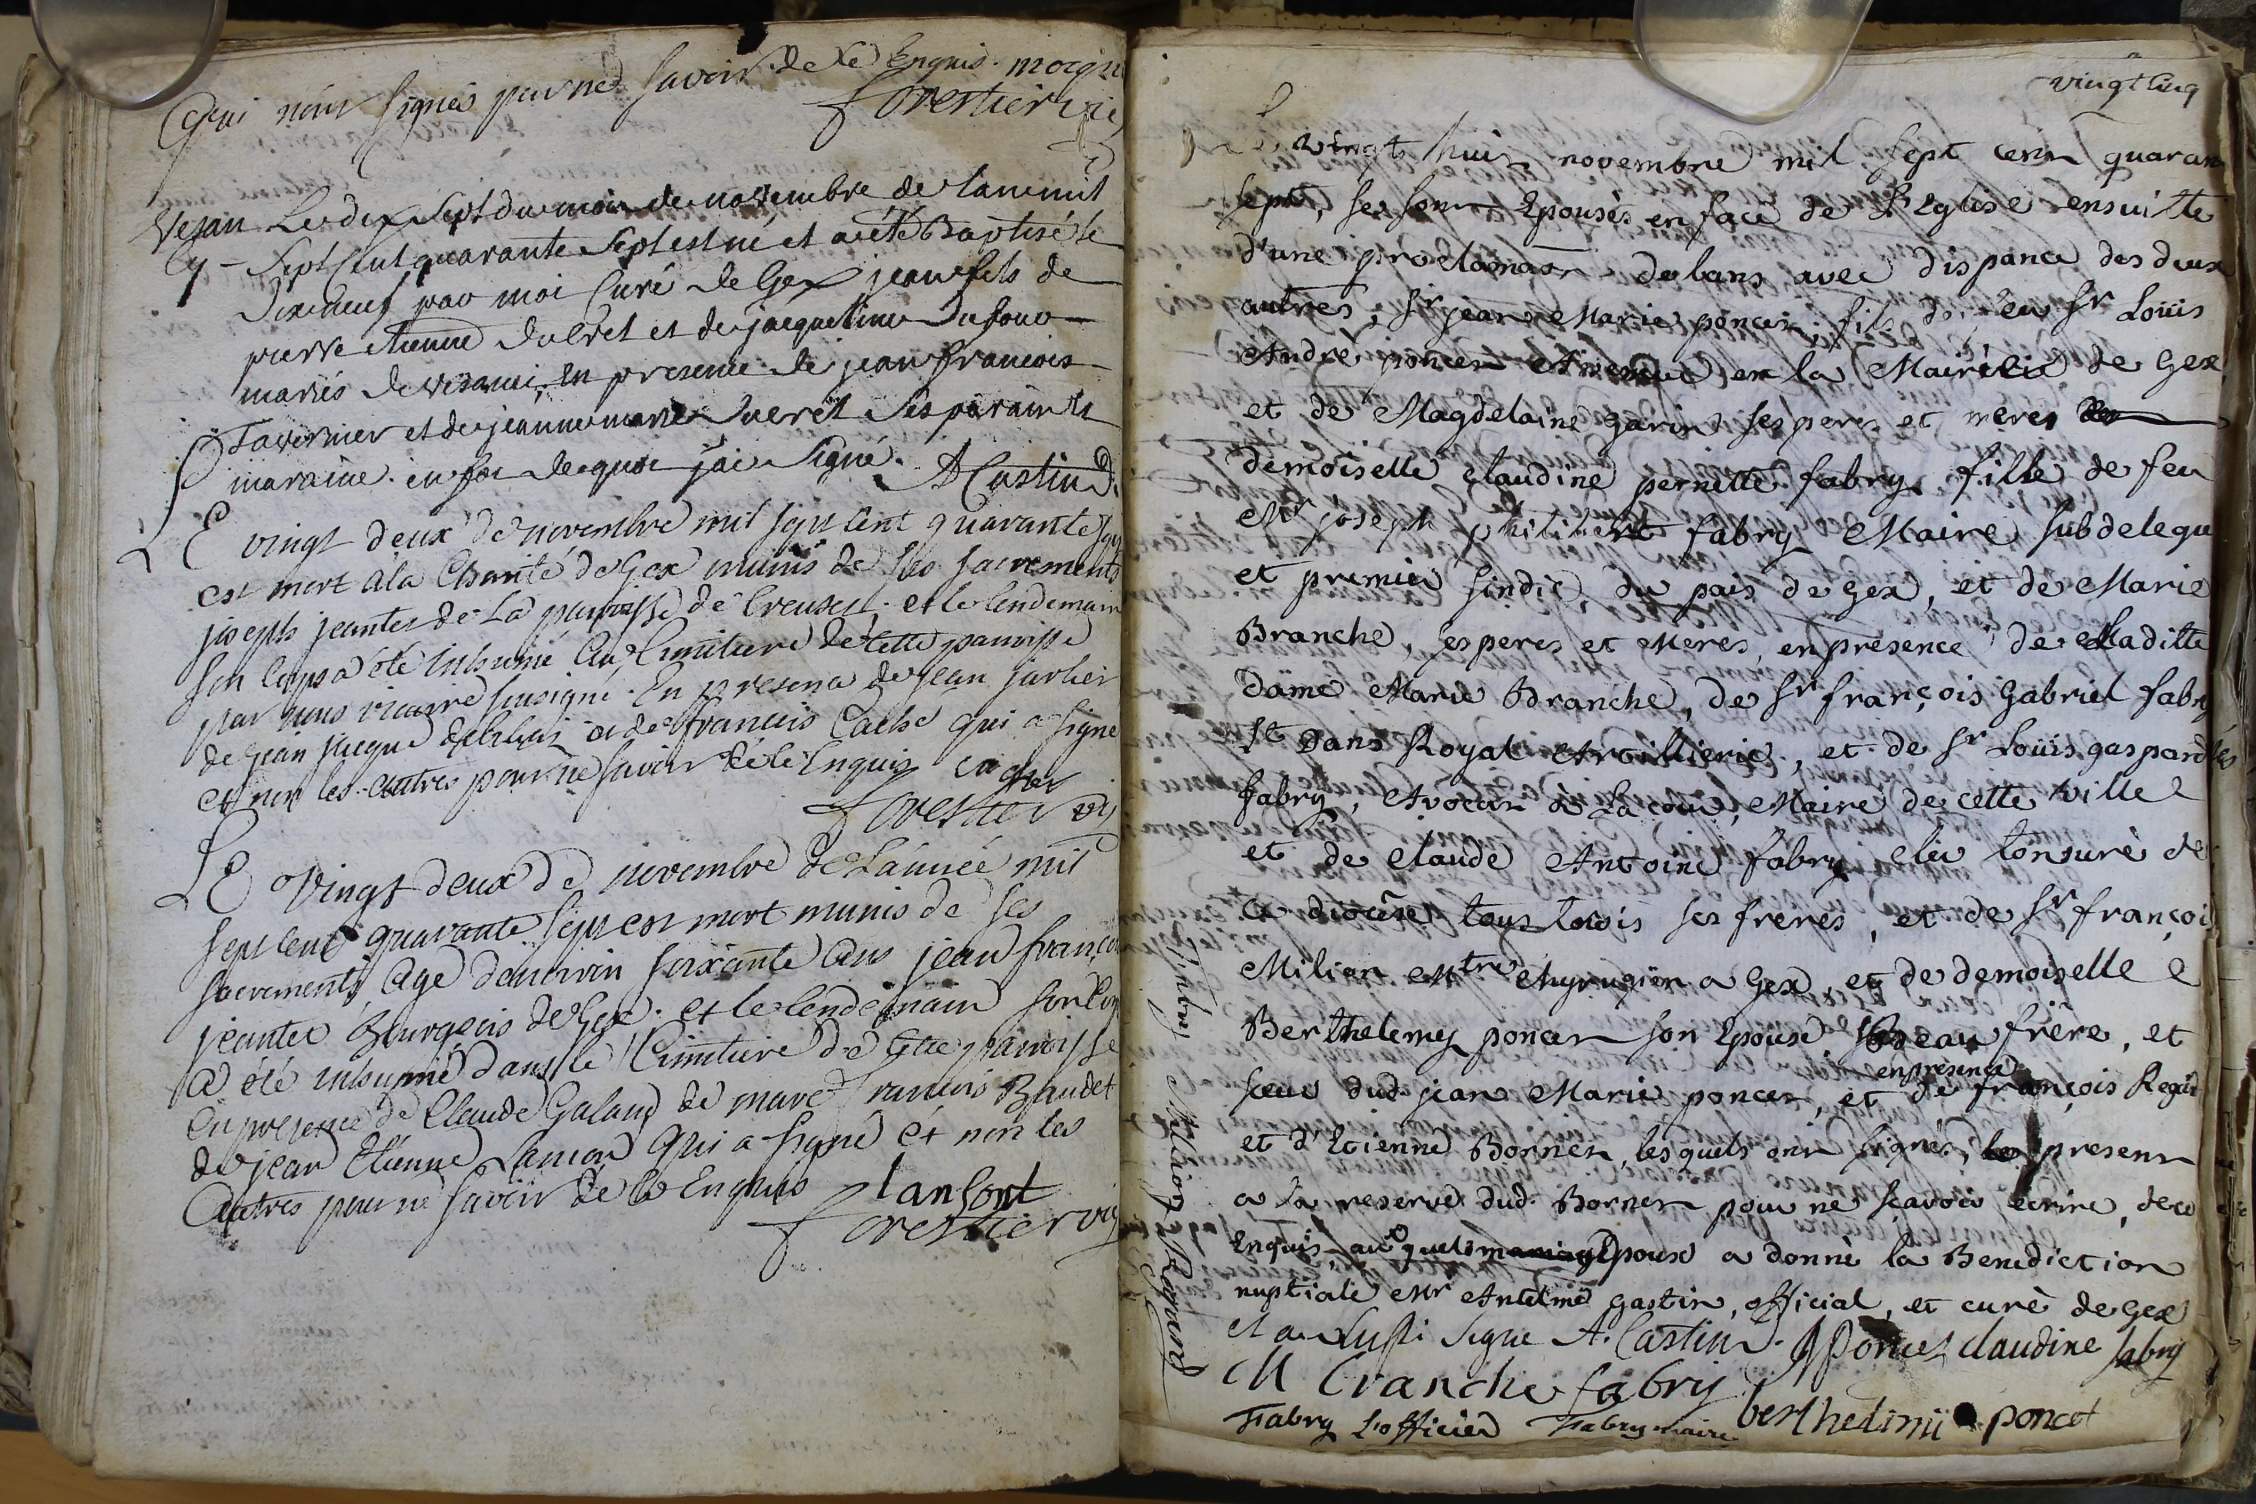 qui n'ont signés pour ne savoir de ce Enquis. morgni
Forestier vic
Vesan Le dix sept du mois de novembre de lan mil
cy - sept cent quarante sept est né et a été Baptisé le
dixneuf par moi Curé de Gex jean fils de
pierre etienne dueret et de jacqueline Dufour
mariés de vesanci, en presence de jean francois
Tavernier et de jeanne marie Dueret ses parain et
maraine. en foi de quoi jai signé. A Castin d.
LE vingt deux de novembre mil sept cent quarante sept
est mort a la Charité de Gex munis de ses sacrements
joseph jeantet de La parroisse de et le lendemain
son corps a été inhumé au Cimetiere de cette parroisse
par nous vicaire sousigné. En presence de jean jarlier
de jean jacque et de francois Cache qui a signé
et non les autres pour ne savoir de ce Enquis cacher
Forestier vic
LE vingt deux de novembre de L'année mil
sept cent quarante sept est mort munis de ses
sacrements, agé denviron soixante ans jean françois
jeantet Bourgeois de Gex. et le lendemain son corp
a été inhumé dans le Cimetiere de cette parroisse
en presence de Claude Galand de marc francois Baudet
de jean Etienne Lancon qui a signé et non les
autres pour ne savoir de ce Enquis lanSont
Forestier vic
vingt cinq
Le vingt huit novembre mil sept cent quaran
sept, se sont Epousés en face de l'Eglise ensuitte
d'une proclamaon de bans avec dispance des deux
autres, Sr jean Marie poncet, fils de feu Sr Loüis
André poncet en la Mairerie de Gex,
et de Magdelaine garin ses peres et meres
demoiselle Claudine pernette fabry fille de feu
Mr joseph philibert fabry Maire subdelegué
et premier sindic, du païs de Gex, et de Marie
Branche, ses peres et Meres, en présence de Maditte
Dame Marie Branche, de Sr françois Gabriel fabry
Lt Dans Royal Artillierie, et de Sr Loüis gaspard
fabry, Avocat a la cour, Maire de cette ville
et de Claude Antoine fabry clerc tonsuré de
ce diocêse tous trois ses freres, et de Sr françois
Milion Mtre Chyrugien a Gex, et de demoiselle
Berthelemy poncet son Epouse, beau frère, et
en présence
seur dud. jean Marie poncet, et de françois Regis
et d'Etienne Bornet, lesquels ont signés, present
a la reserve dud. Bornet pour ne sçavoir ecrire, de ce
Enquis, auxquels mariage Epoux a donné la Benediction
nuptiale Mr Antelme gastin, official, et curé de Gex
et a aussi signé A. Castin d. JPoncet claudine fabry
M branche fabry
Fabry L'officier Fabry maire berthelmii poncet
fabry Million Regnard